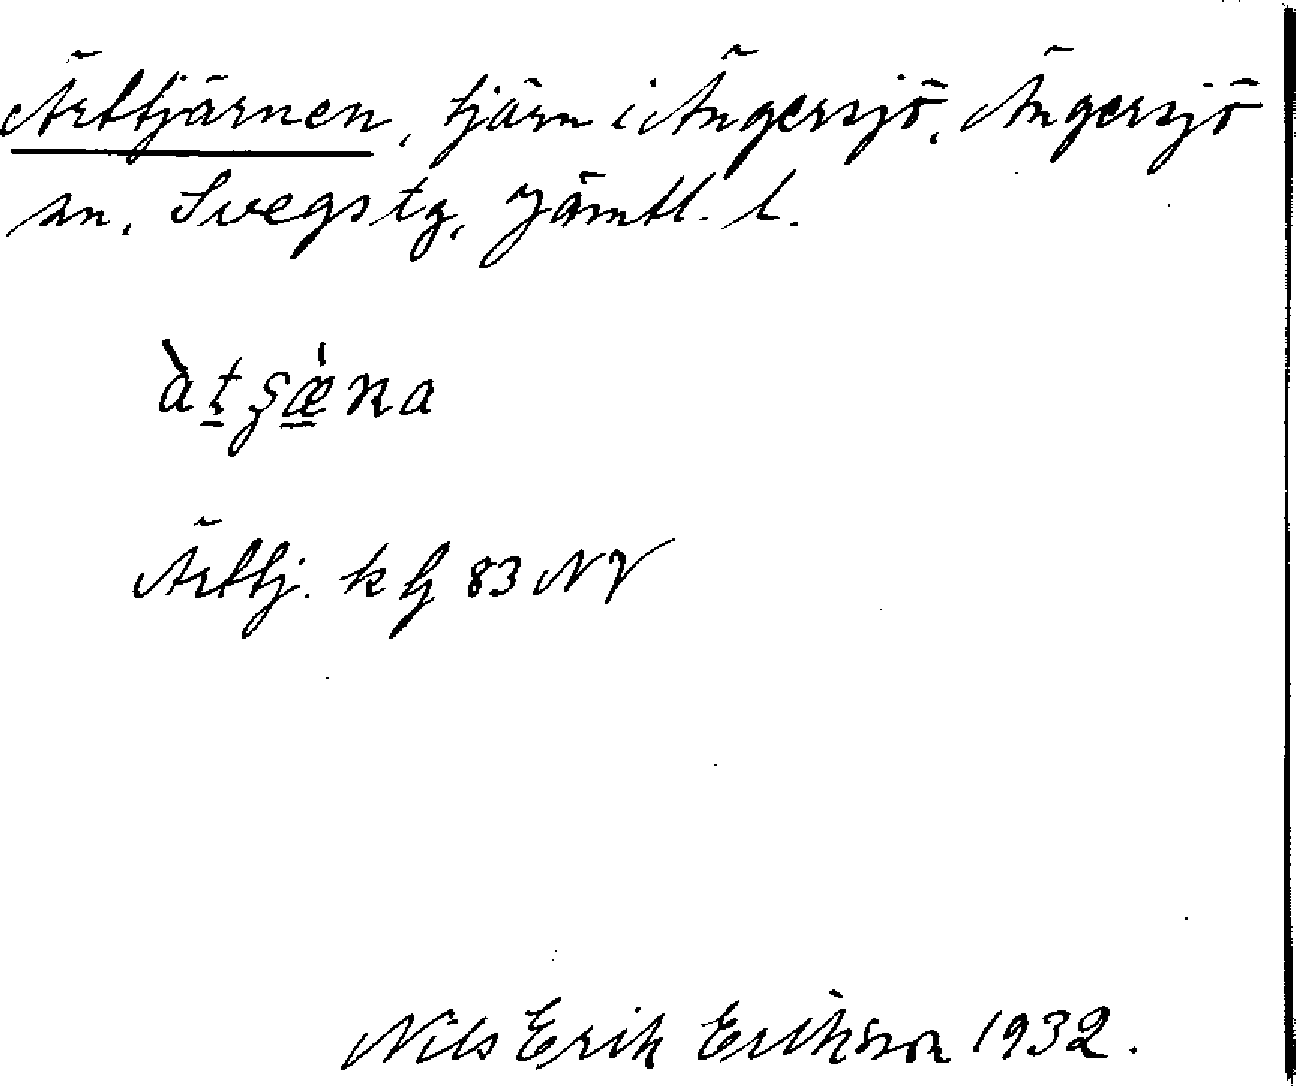 Ärttjärnen, tjärn i Ängersjö, Ängersjö
sn, Svegs tg, Jämtl. l.
àtʂǽna
Ärttj. k bl 83 NV
Nils Erik Erikson 1932.